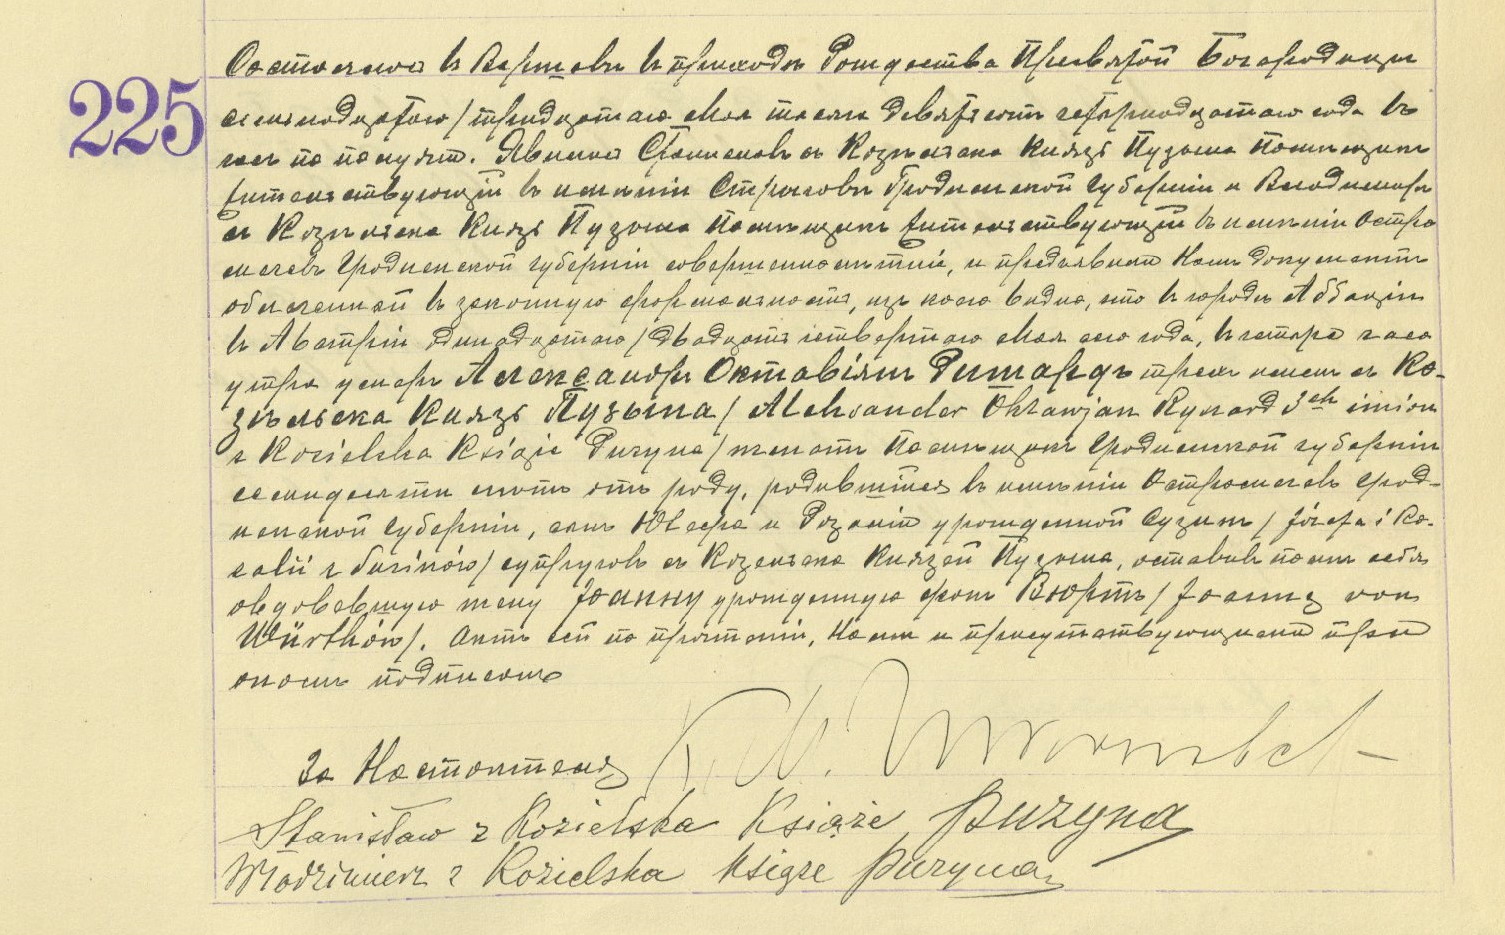 225
Состоялось въ Варшавѣ въ приходѣ Рождества Пресвятой Богородицы
семнадцатаго / тридцатаго Мая тысяча девятьсотъ четырнадцатаго года въ
часъ по полудни. Явились Станиславъ съ Козѣльска Князь Пузына помѣщикъ
жительствующій въ имѣніи Стриговъ Гродненской губерніи и Владимиръ
съ Козѣльска Князь Пузына помѣщикъ жительствующій въ имѣніи Остро
мечевъ Гродненской губерніи совершеннолѣтніе, и предъявили Намъ документъ
облеченный въ законную формальность, изъ коего видно, что въ городѣ Аббаціи
въ Австріи одинадцатаго / двадцать четвертаго Мая сего года, въ четыре часа
утра умеръ Александръ Октавіянъ Ришардъ трехъ именъ съ Ко-
зѣльска Князь Пузына / Aleksander Oktawjan Ryszard 3ch imion
z Kozielska Książe Puzyna / женатъ помѣщикъ Гродненской губерніи
семидесяти лѣтъ отъ роду, родившійся въ имѣніи Остромечевъ Грод-
ненской губерніи, сынъ Юзефа и Розаліи урожденной Сузинъ / Józefa i Ro-
zalii z Suzinów / супруговъ съ Козельска Князей Пузына, оставивъ послѣ себя
овдовѣвшую жену Іоанну урожденную фонъ Вюртъ / Joannę von
Würthów /. Актъ сей по прочтеніи, Нами и присутствующими при
ономъ подписанъ
За Настоятеля
Stanisław z Kozielska Książe Puzyna
Włodzimierz z Kozielska Książe Puzyna